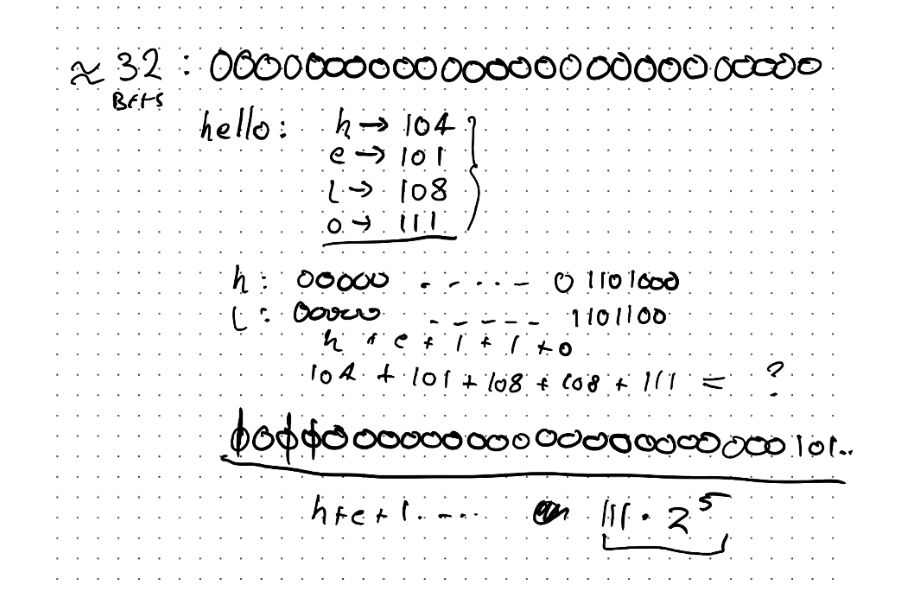 ≈ 32 : 00000000000000000000000000000
Bits
hello: h → 104
e → 101
l → 108
o → 111
h: 00000 . - . . . - 01101000
l: 00000 - - - - - 1101100
h + e + l + l + o
104 + 101 + 108 + 108 + 111 = ?
00000000000000000000000000101..
h+e+l. - - . 111 · 2^5